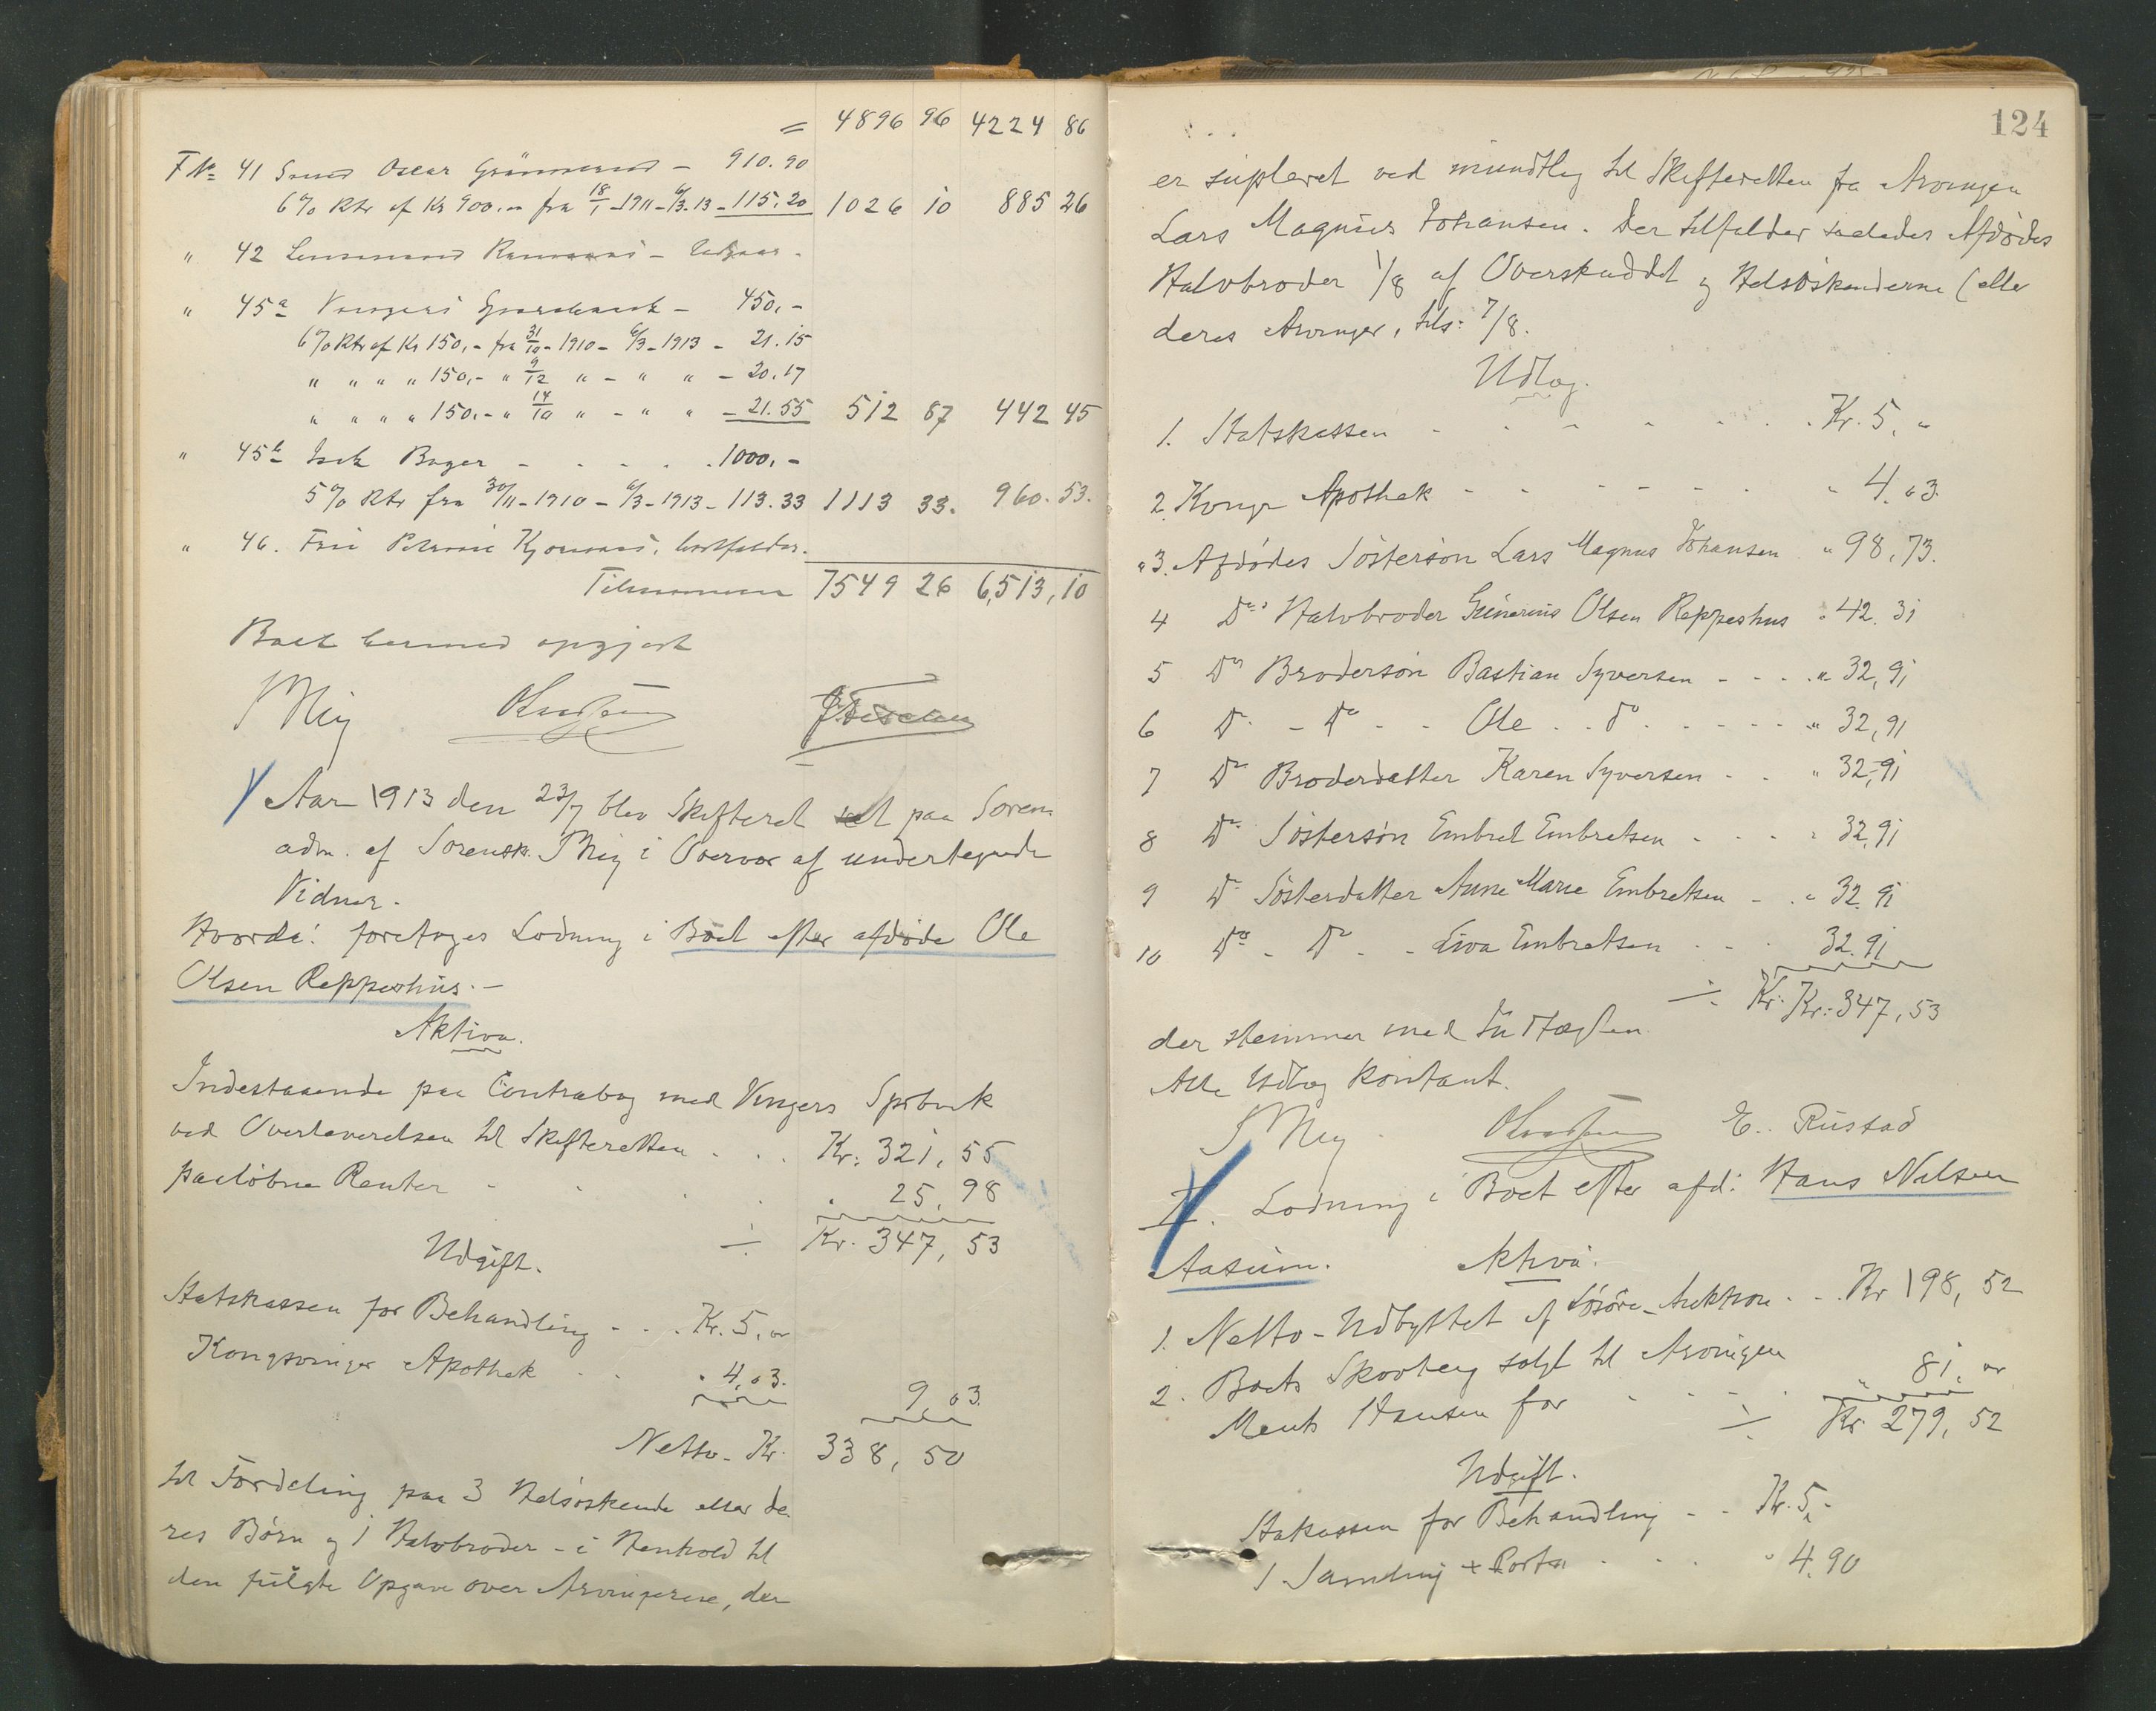 = 4896 96 4224 86
F № 41 Oscar - 910.90
6% Rtr af Kr 900.- fra 18/1-1911-6/3-13 - 115.20 1026 10 885 26
" 42 Lensmand -
" 45a Vingers Sparebank - 450,-
6% Rtr af Kr 150,- fra 31/10-1910-6/3-1913 - 21.15
" " " " 150,- " 9/12 " - " " - 20.17
" " " " 150,- " 14/10 " - " " - 21.55 512 87 442 45
" 45b Isak Bager - . . . . 1000,-
5% Rtr fra 30/11-1910-6/3-1913 - 113.33 1113 33. 960.53.
" 46. Fru bortfalder.
Tilsammen 7549 26 6,513,10
Boet hermed opgjort
Aar 1913 den 23/7 blev Skifteret sat paa Soren.
adm. af Sorensk. i Overvær af undertegnede
Vidner.
Hvorda: foretoges Lodning i Boet efter afdøde Ole
Olsen Reppeshus.-
Aktiva.
Indestaaende paa Contrabog med Vingers Spbank
ved Overleverelsen til Skifteretten . . . Kr. 321,55
paaløbne Renter - . . . . 25,98
÷ Kr. 347,53
Udgift.
Statskassen for Behandling - . . Kr. 5,"
Kongsvinger Apothek . . " 4,03.
9,03
Netto - Kr. 338,50
til Fordeling paa 3 Helsøskende eller de-
res Børn og 1 Halvbroder - i Henhold til
den fulgte Opgave over Arvingerne, der
124
er supleret ved mundtlig til Skifteretten fra Arvingen
Lars Magnus Johansen. Der tilfalder saaledes Afdødes
Halvbroder 1/8 af Overskuddet og Helsøskenderne (eller
deres Arvinger, tils: 7/8.
Udlæg.
1. Statskassen - - - - - . . Kr. 5,"
2. Kongv. Apothek - - - - - - " 4,03.
" 3. Afdødes Søstersøn Lars Magnus Johansen " 98,73.
4 Do Halvbroder Gunerius Olsen Reppeshus " 42.31
5 Do Brodersøn Bastian Syversen - - - . " 32,91
6 Do - Do - - Ole . . do . - - - - " 32,91
7 Do Broderdatter Karen Syversen - . " 32,91
8 Do Søstersøn Embret Embretsen - - - " 32,91
9 Do Søsterdatter Anne Marie Embretsen - . " 32.91
10 Do - Do . - Embretsen - - . 32.91
÷ Kr. Kr. 347,53
der stemmer med Indtægten
Alle Udlæg kontant.
E. Rustad
II. Lodning i Boet efter afd: Hans Nilsen
Aasum. Aktiva.
1. Netto-Udbyttet af Løsøre-Auktion - . Kr 198,52
2. Boets Skovteig solgt til Arvingen
Hansen for - - - . " 81,"
÷ Kr 279,52
Udgift.
Statskassen for Behandling - - Kr. 5,-
1 Samling + Porto . . . " 4.90